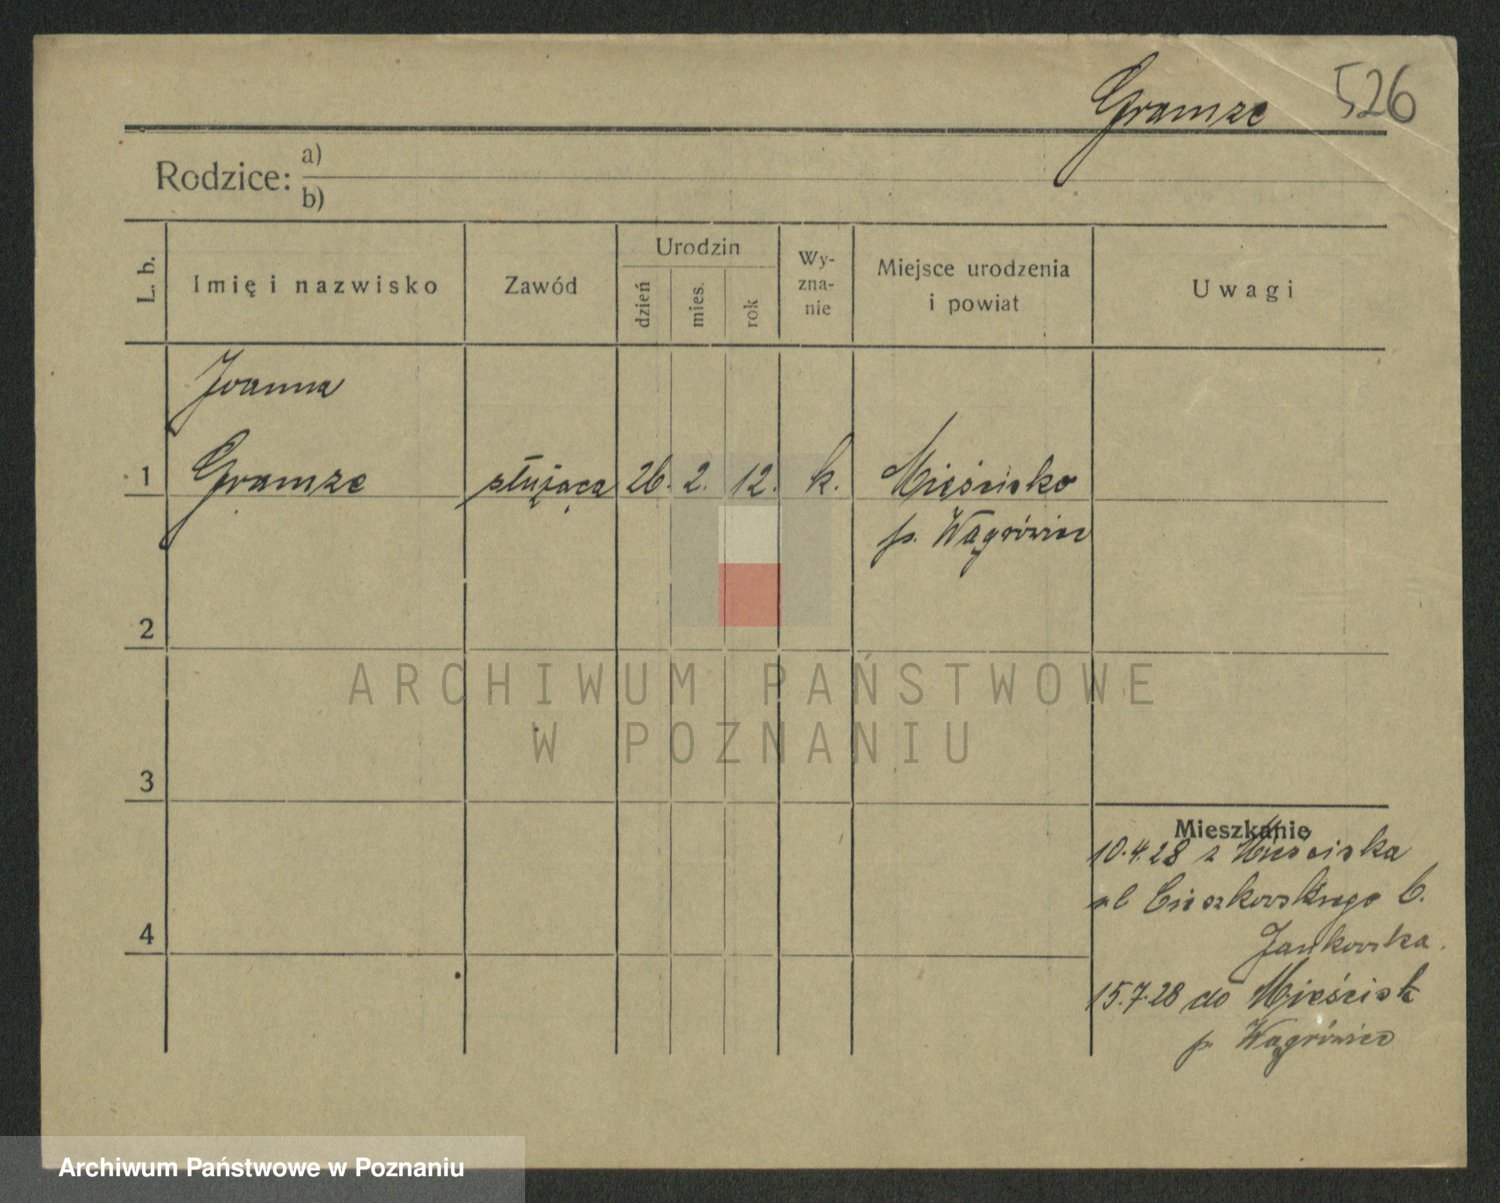 Gramze 526
Rodzice: a)
b)
L. b.
Imię i nazwisko
Zawód
Urodzin
dzień
mies.
rok
Wy-
zna-
nie
Miejsce urodzenia
i powiat
Uwagi
Joanna
1 Gramze służąca 26. 2. 12. k. Mieścisko
p. Wągrówiec
2
3
4
Mieszkanie
10.4.28 z Mieściska
ul Cieszkowskiego 6.
Jankowska.
15.7.28 do Mieścisk
p. Wągrówiec
ARCHIWUM PAŃSTWOWE
W POZNANIU
Archiwum Państwowe w Poznaniu